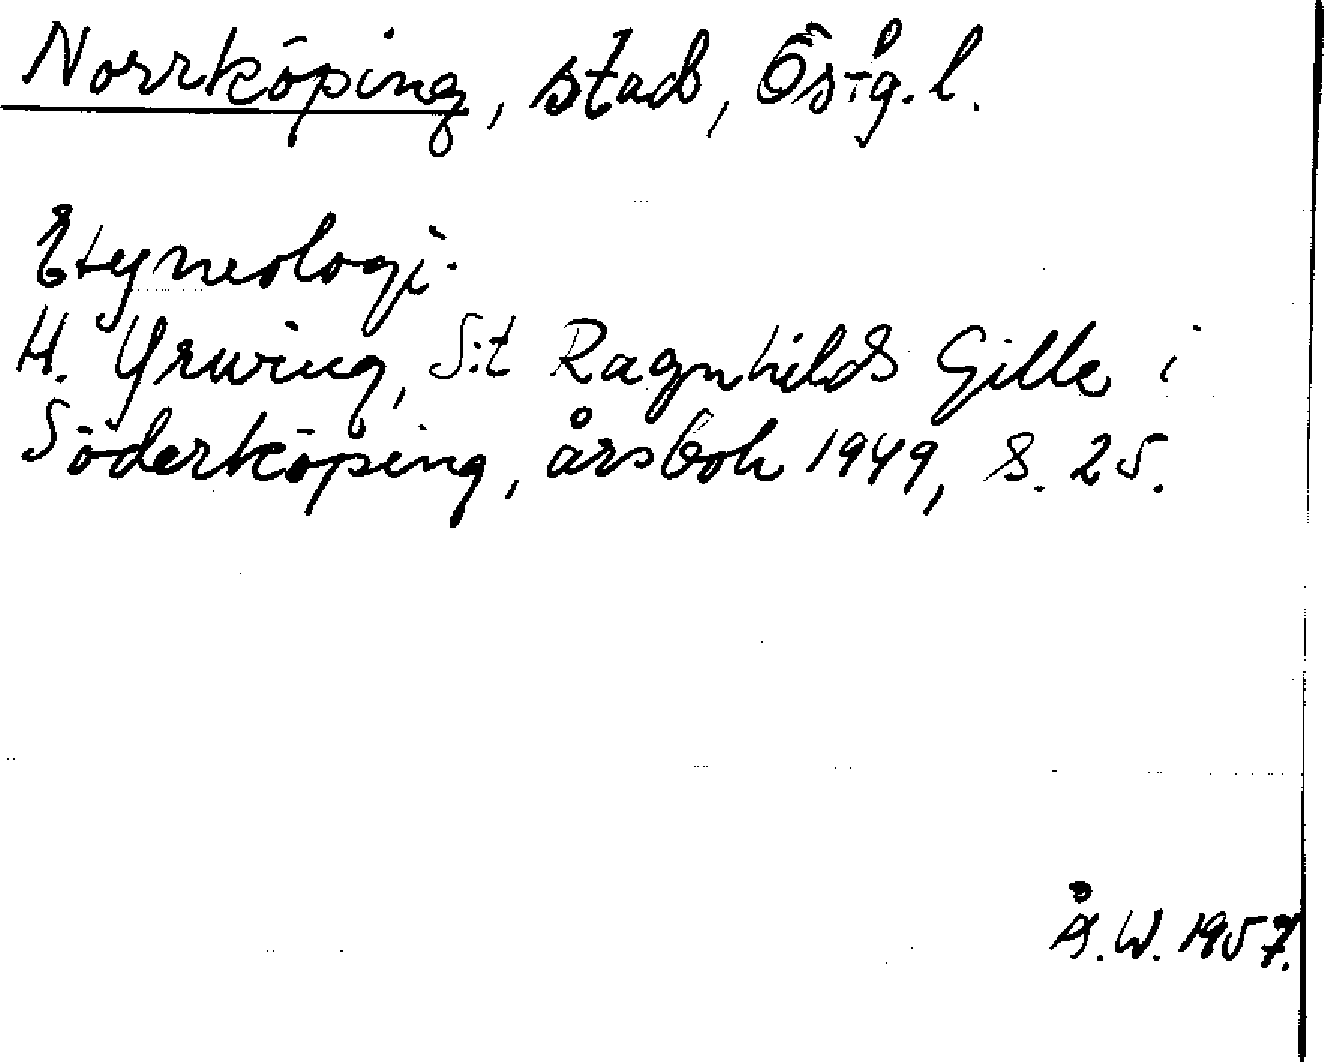 Norrköping, stad, Östg. l.
Etymologi.
H. Yrwing, S:t Ragnhilds Gille i
Söderköping, årsbok 1949, s. 25.
Å.W. 1957.